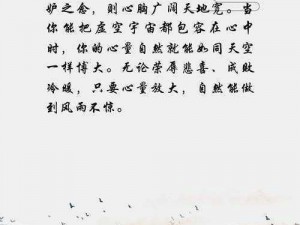 妒之念，则心胸广阔天地宽。当
你能把虚空宇宙都包容在心中
时，你的心量自然就能如同天空
一样博大。无论荣辱悲喜、成败
冷暖，只要心量放大，自然能做
到风雨不惊。